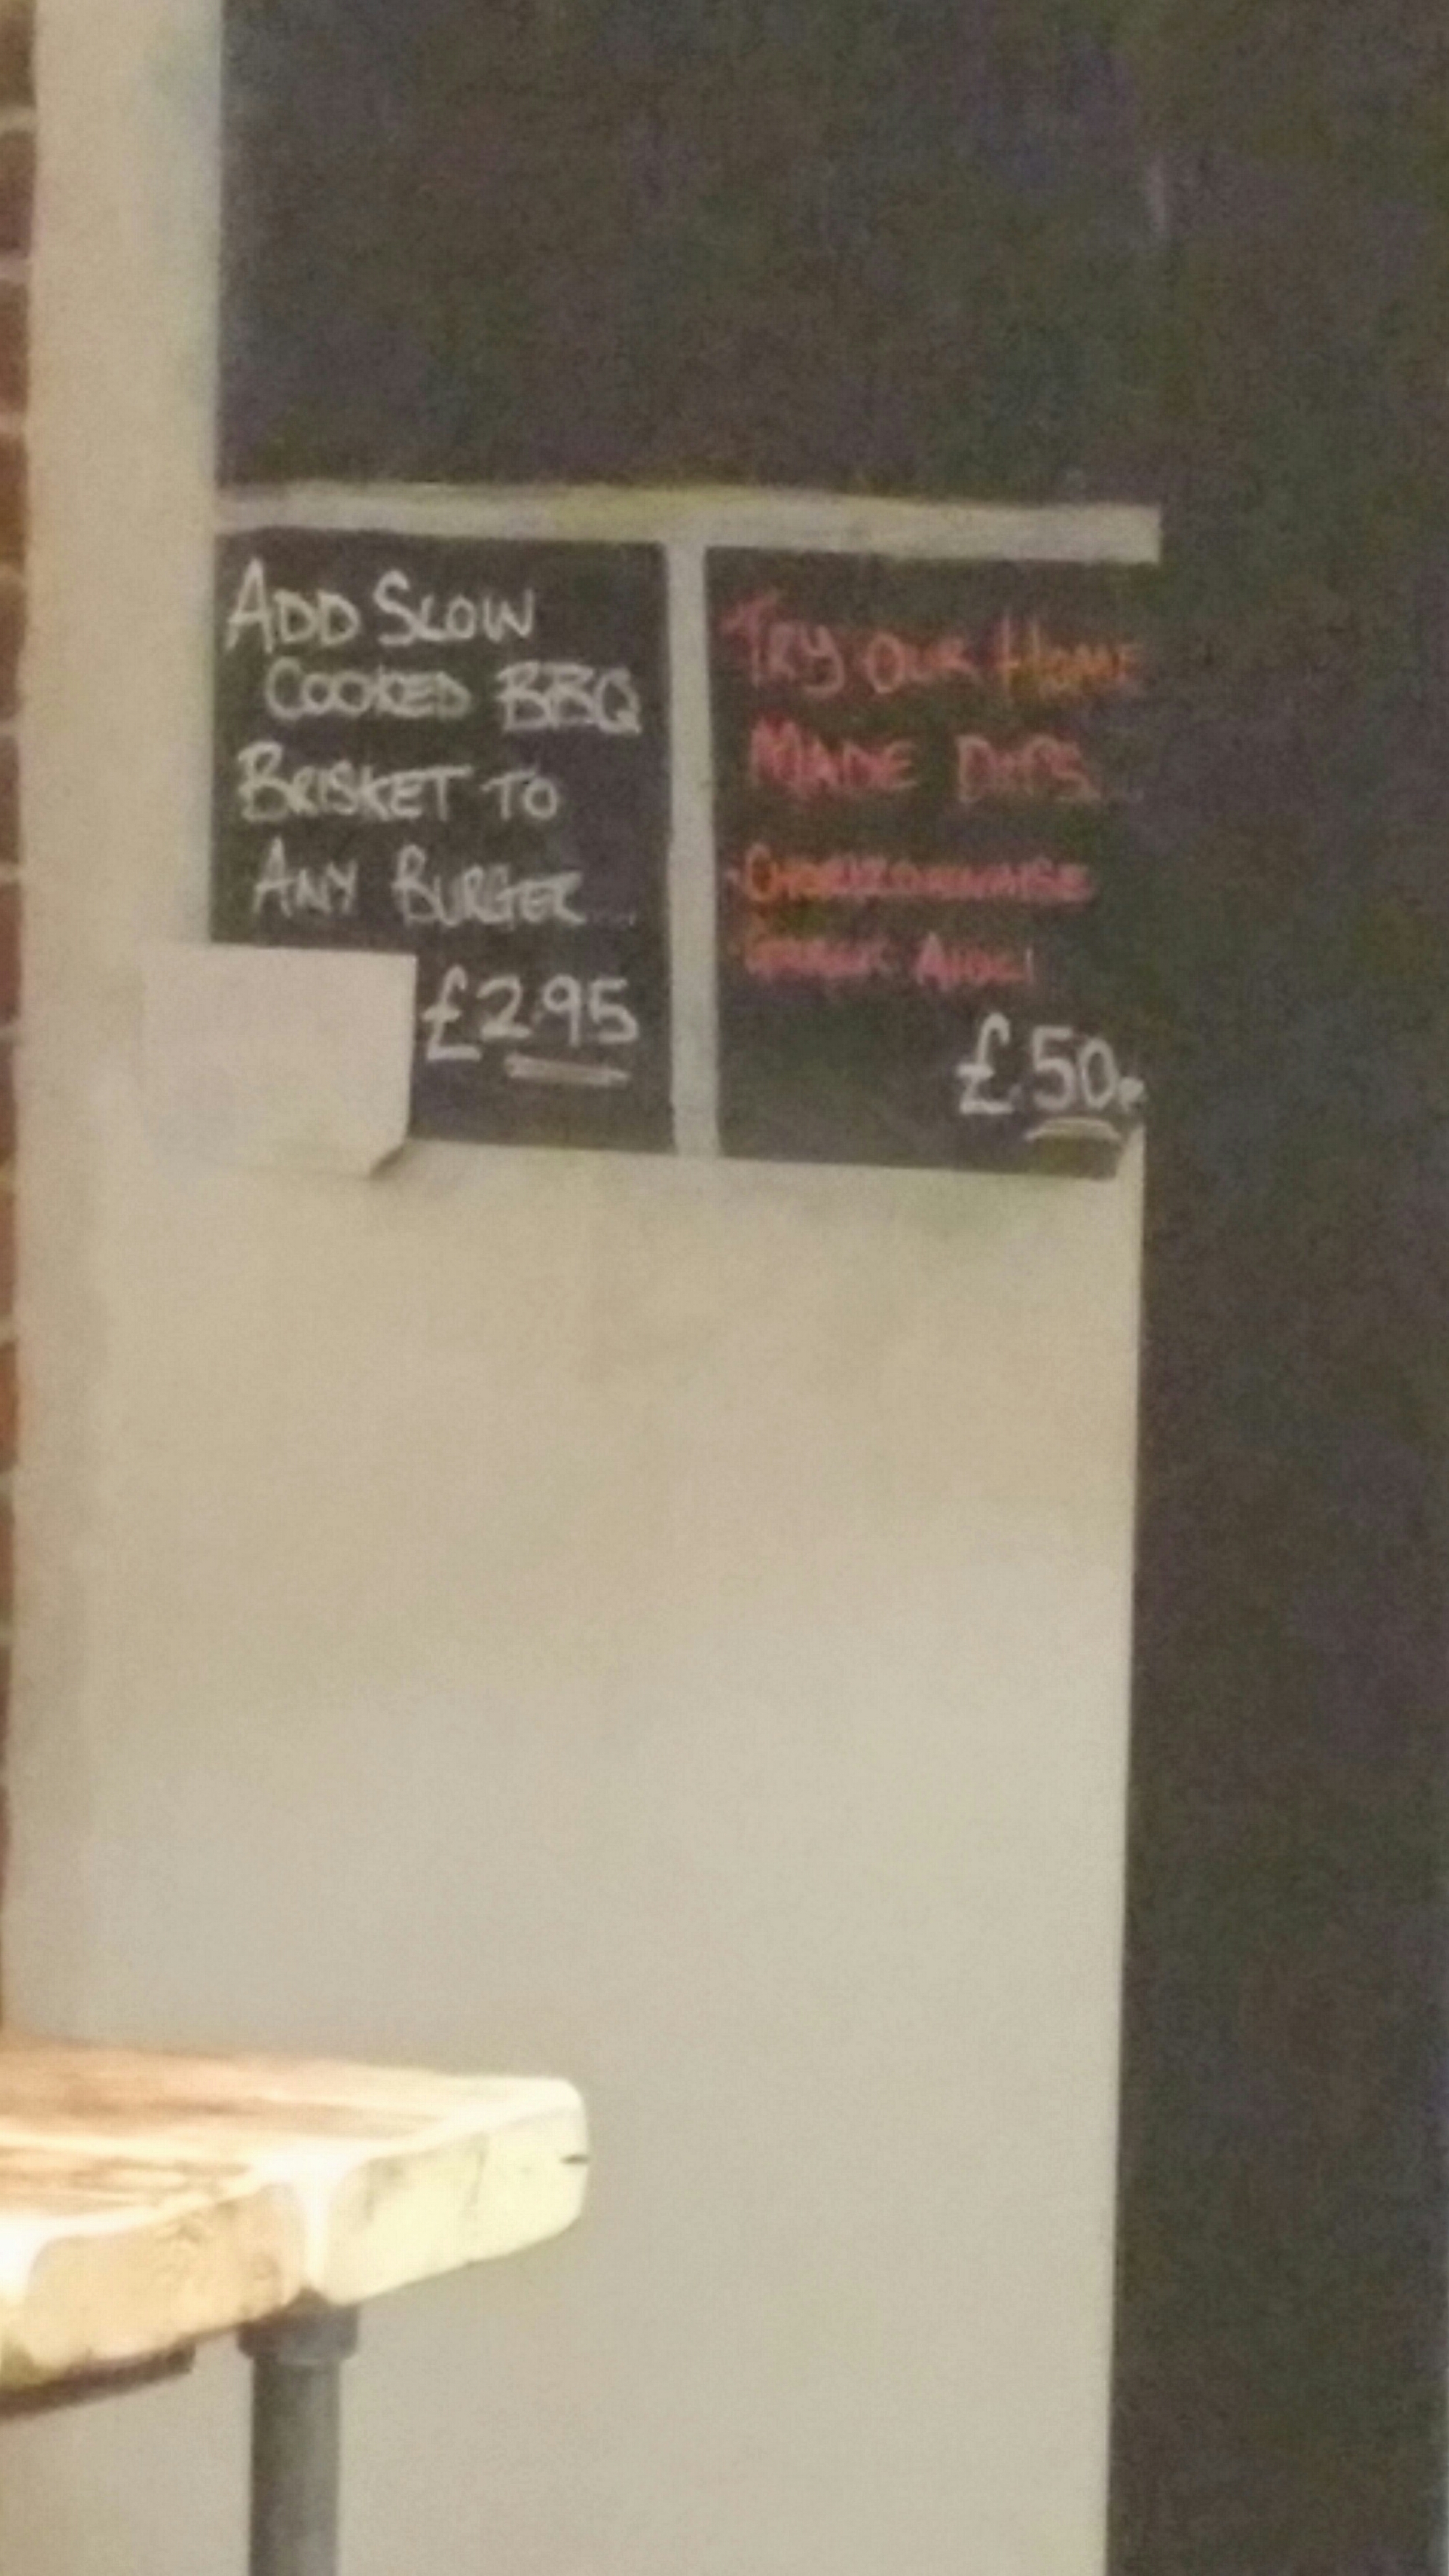 ADD SLOW
COOKED BBQ
BRISKET TO
ANY BURGER...
£2.95
TRY OUR HOME
MADE DIPS...
£50p